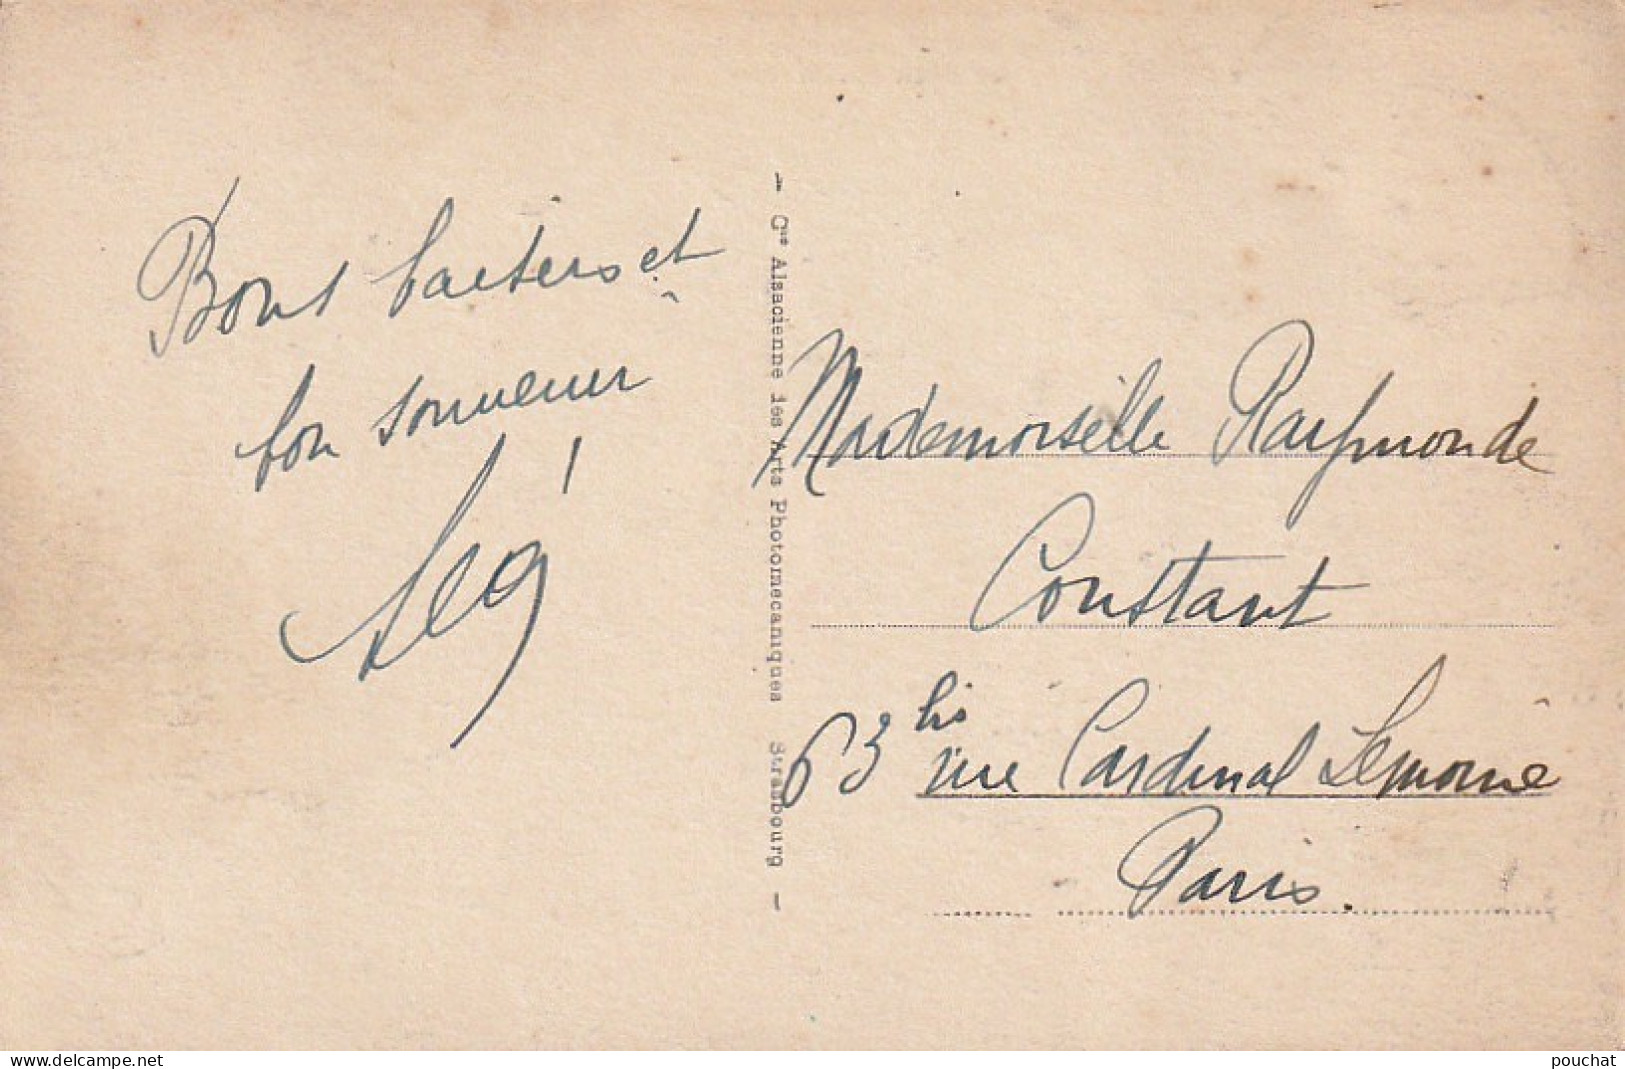 Bons baisers et
bon souvenir
Léo
- Cie Alsacienne des Arts Photomecaniques Strasbourg -
Mademoiselle Raymonde
Constant
63 bis rue Cardinal Lemoine
Paris.
www.delcampe.net
pouchat